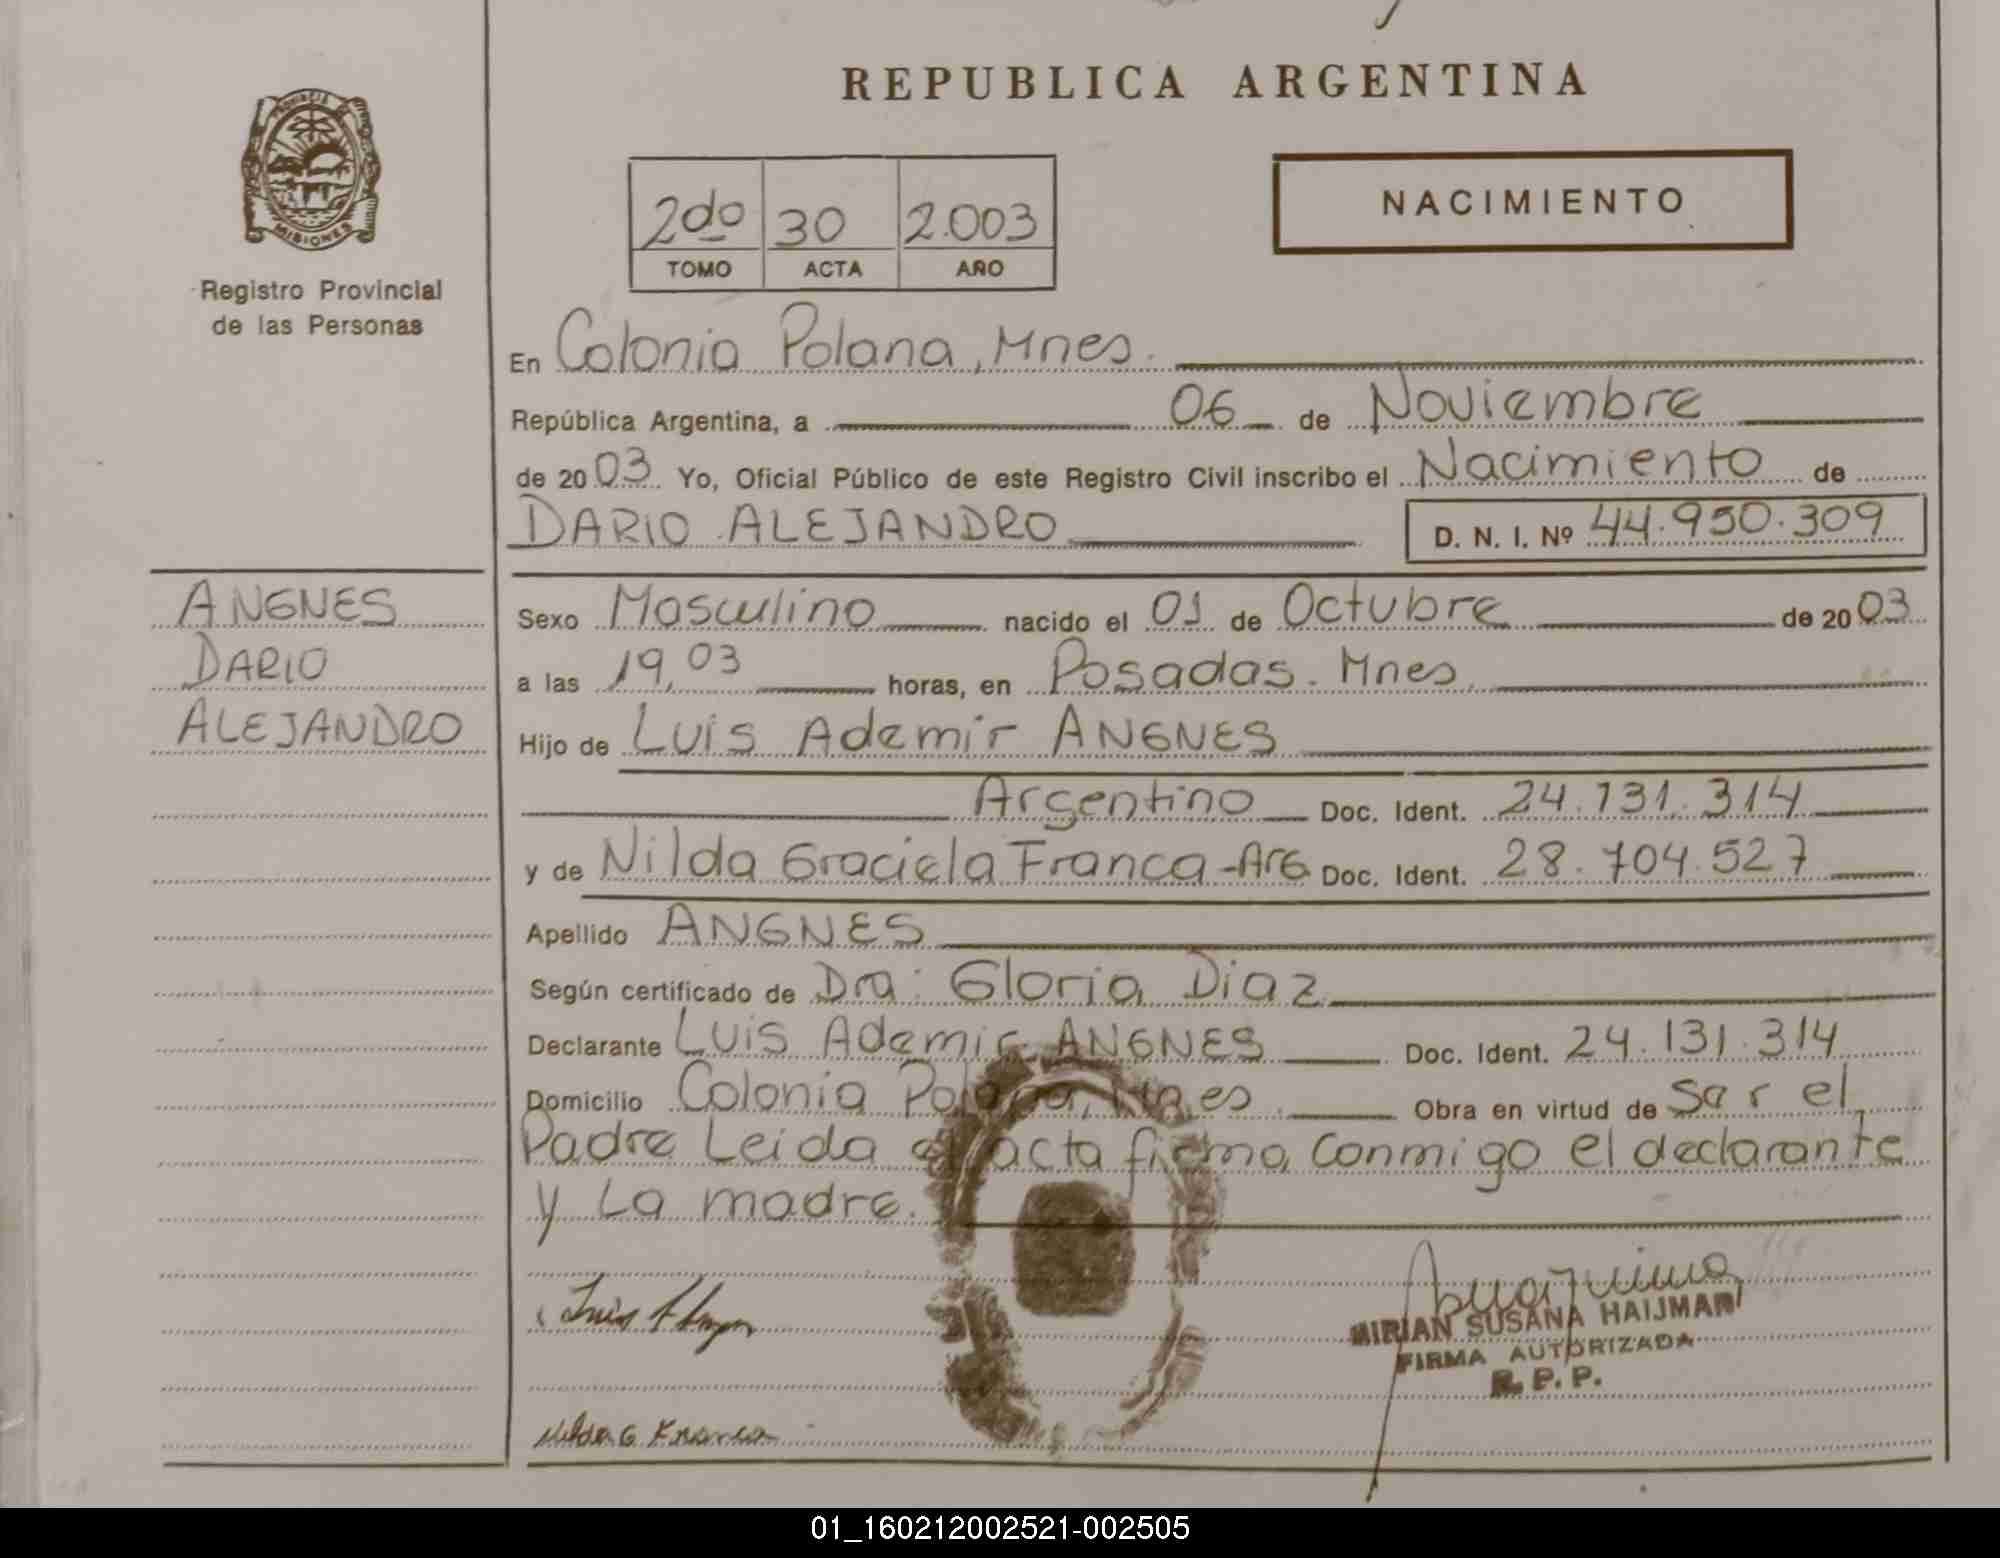 REPUBLICA ARGENTINA
PROVINCIA
MISIONES
Registro Provincial
de las Personas
2do 30 2.003
TOMO ACTA AÑO
NACIMIENTO
En Colonia Polana, Mnes.
República Argentina, a 06 de Noviembre
de 2003 Yo, Oficial Público de este Registro Civil inscribo el Nacimiento de
DARIO ALEJANDRO D. N. I. Nº 44.950.309
ANGNES
DARIO
ALEJANDRO
Sexo Masculino nacido el 01 de Octubre de 2003
a las 19,03 horas, en Posadas. Mnes
Hijo de Luis Ademir ANGNES
Argentino Doc. Ident. 24.131.314
y de Nilda Graciela Franca-ArG Doc. Ident. 28.704.527
Apellido ANGNES
Según certificado de Dra: Gloria Diaz
Declarante Luis Ademir ANGNES Doc. Ident. 24.131.314
Domicilio Colonia Polana, Mnes Obra en virtud de Sar el
Padre Leida el acta firma conmigo el declarante
y La madre.
MIRIAN SUSANA HAIJMAN
FIRMA AUTORIZADA
R. P. P.
Nilda G Franca
01_160212002521-002505